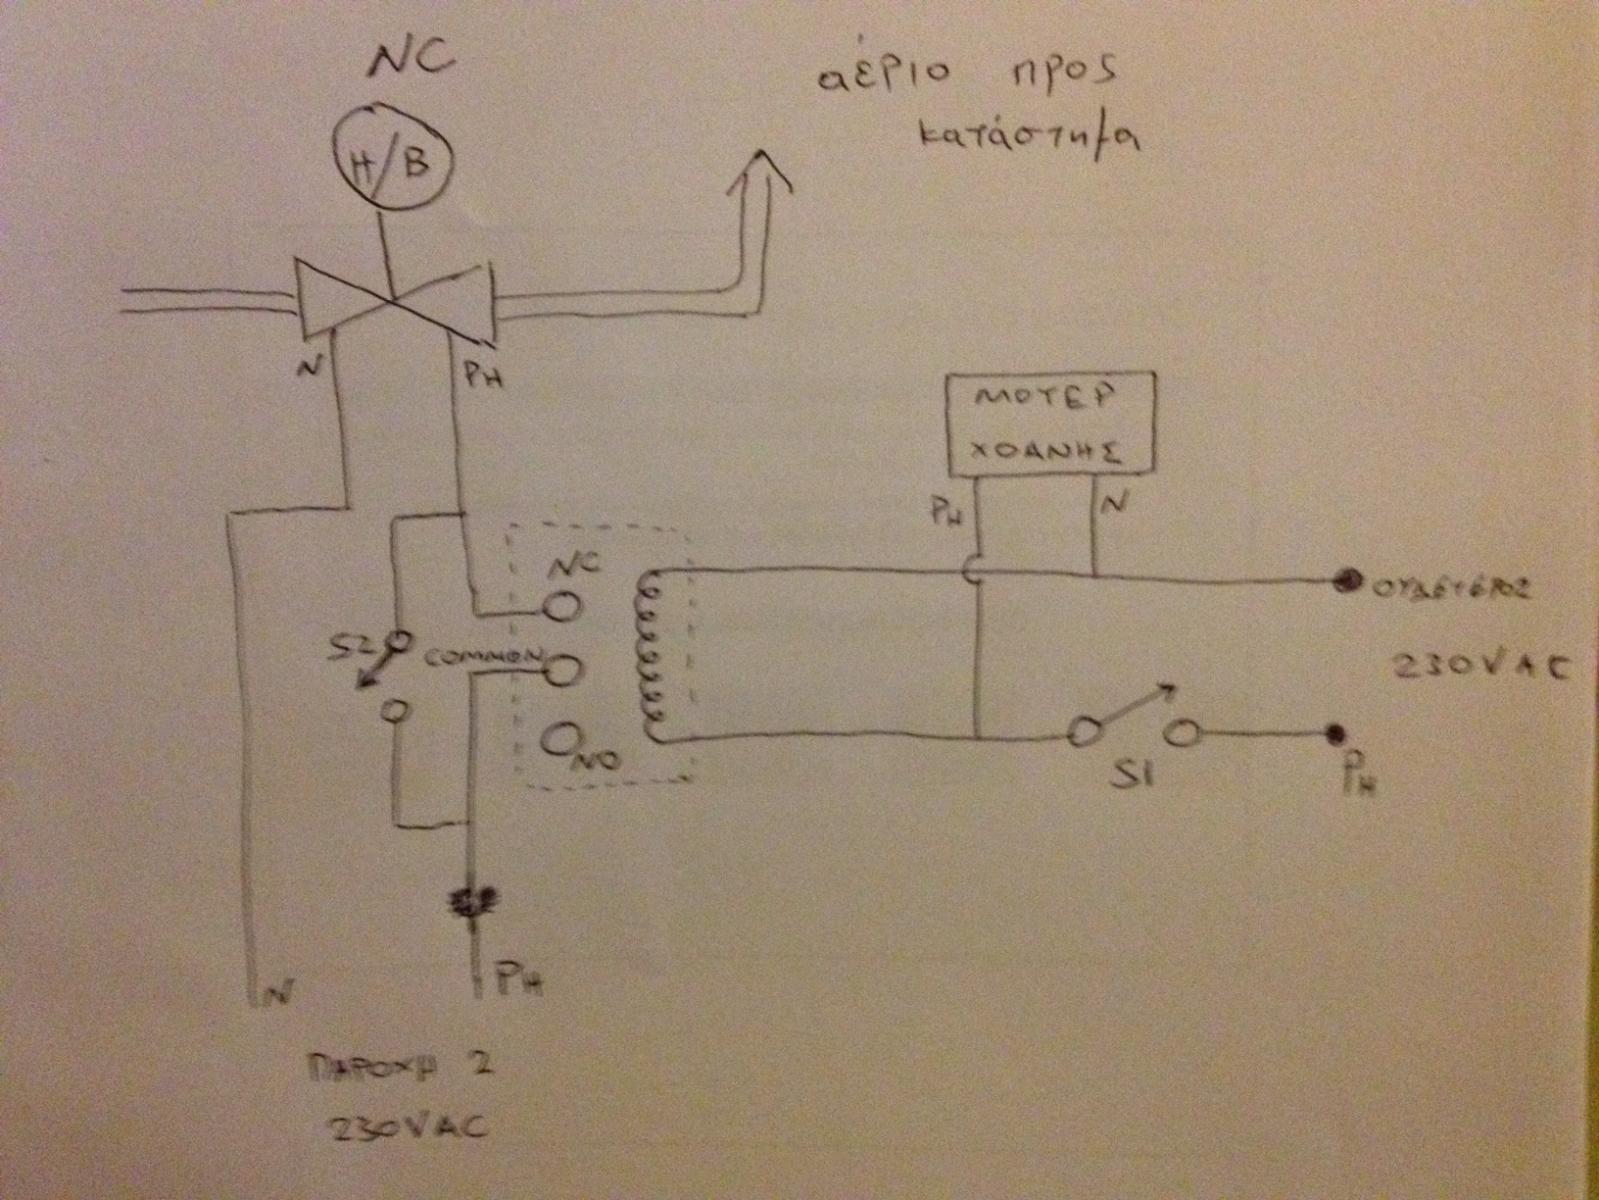 NC
αέριο προς
κατάστημα
H/B
N
PH
ΜΟΤΕΡ
ΧΟΑΝΗΣ
PH
N
NC
ΟΥΔΕΤΕΡΟΣ
S2
COMMON
230VAC
NO
S1
PH
N
PH
ΠΑΡΟΧΗ 2
230VAC